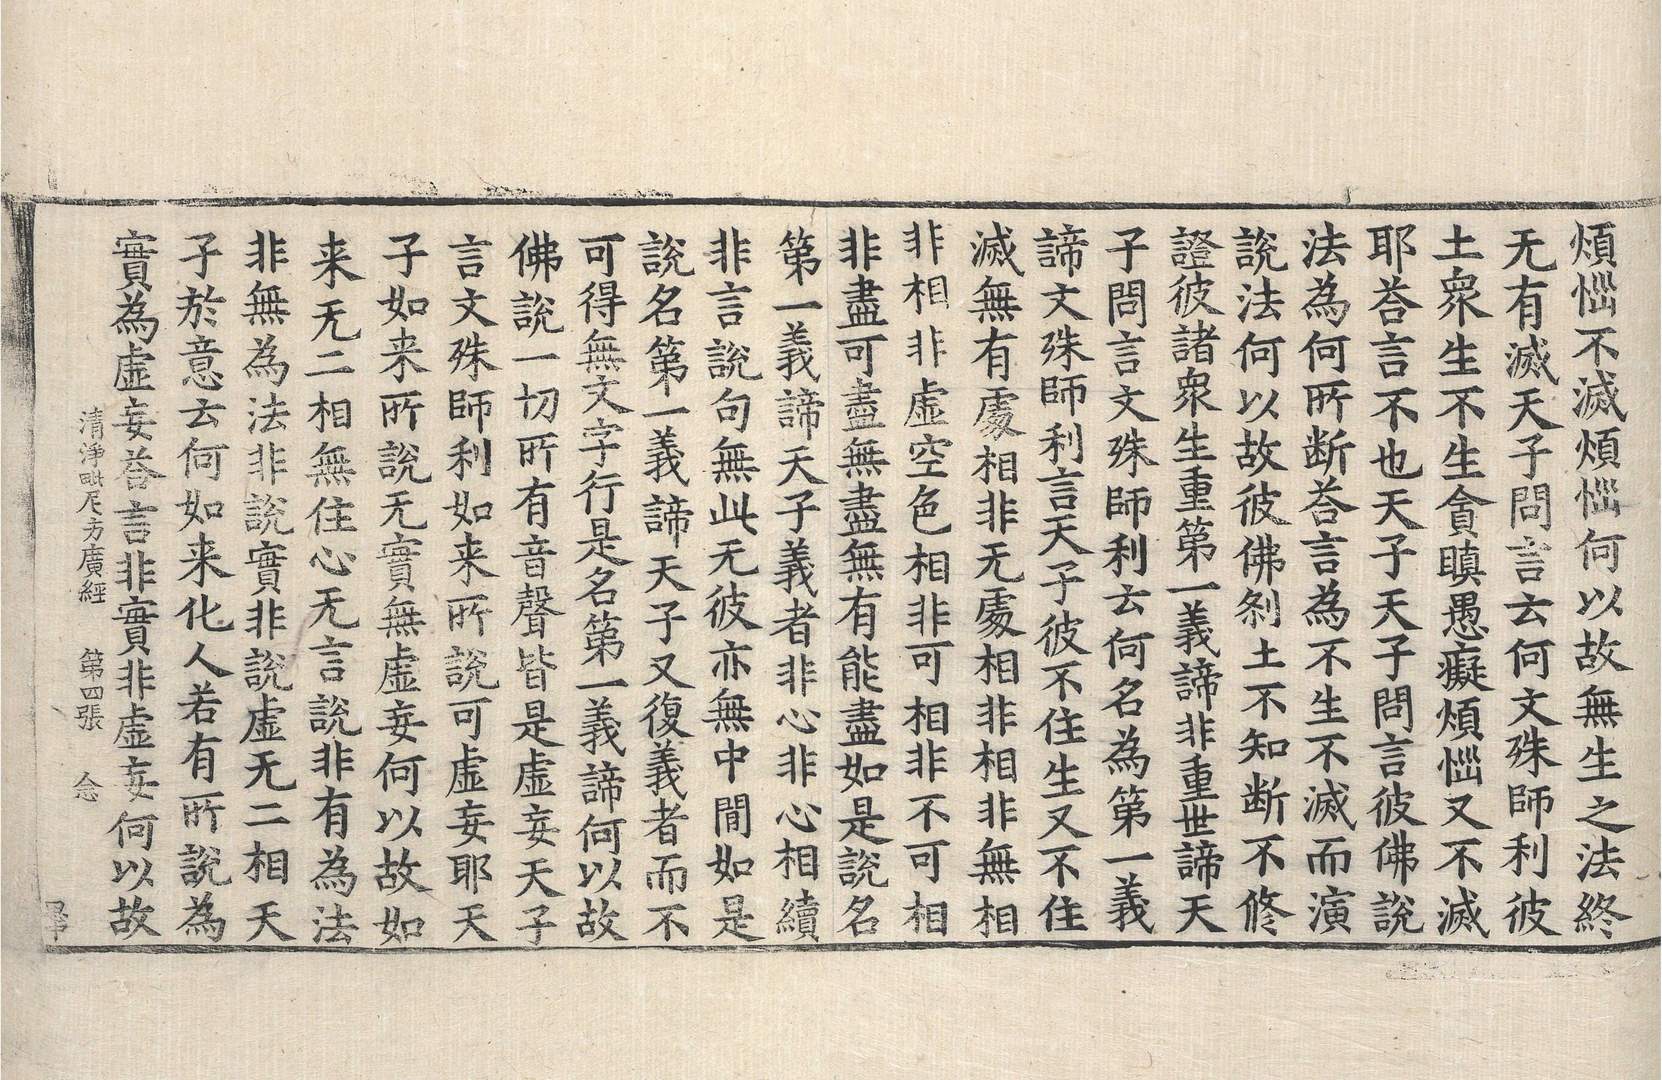 煩惱不滅煩惱何以故無生之法終
无有滅天子問言云何文殊師利彼
土衆生不生貪瞋愚癡煩惱又不滅
耶荅言不也天子天子問言彼佛說
法為何所断荅言為不生不滅而演
說法何以故彼佛剎土不知断不修
證彼諸衆生重第一義諦非重世諦天
子問言文殊師利云何名為第一義
諦文殊師利言天子彼不住生又不住
滅無有處相非无處相非相非無相
非相非虛空色相非可相非不可相
非盡可盡無盡無有能盡如是說名
第一義諦天子義者非心非心相續
非言說句無此无彼亦無中間如是
說名第一義諦天子又復義者而不
可得無文字行是名第一義諦何以故
佛說一切所有音聲皆是虛妄天子
言文殊師利如来所說可虛妄耶天
子如来所說无實無虛妄何以故如
来无二相無住心无言說非有為法
非無為法非說實非說虛无二相天
子於意云何如来化人若有所說為
實為虛妄荅言非實非虛妄何以故
清淨毗尼方廣經 第四張 念